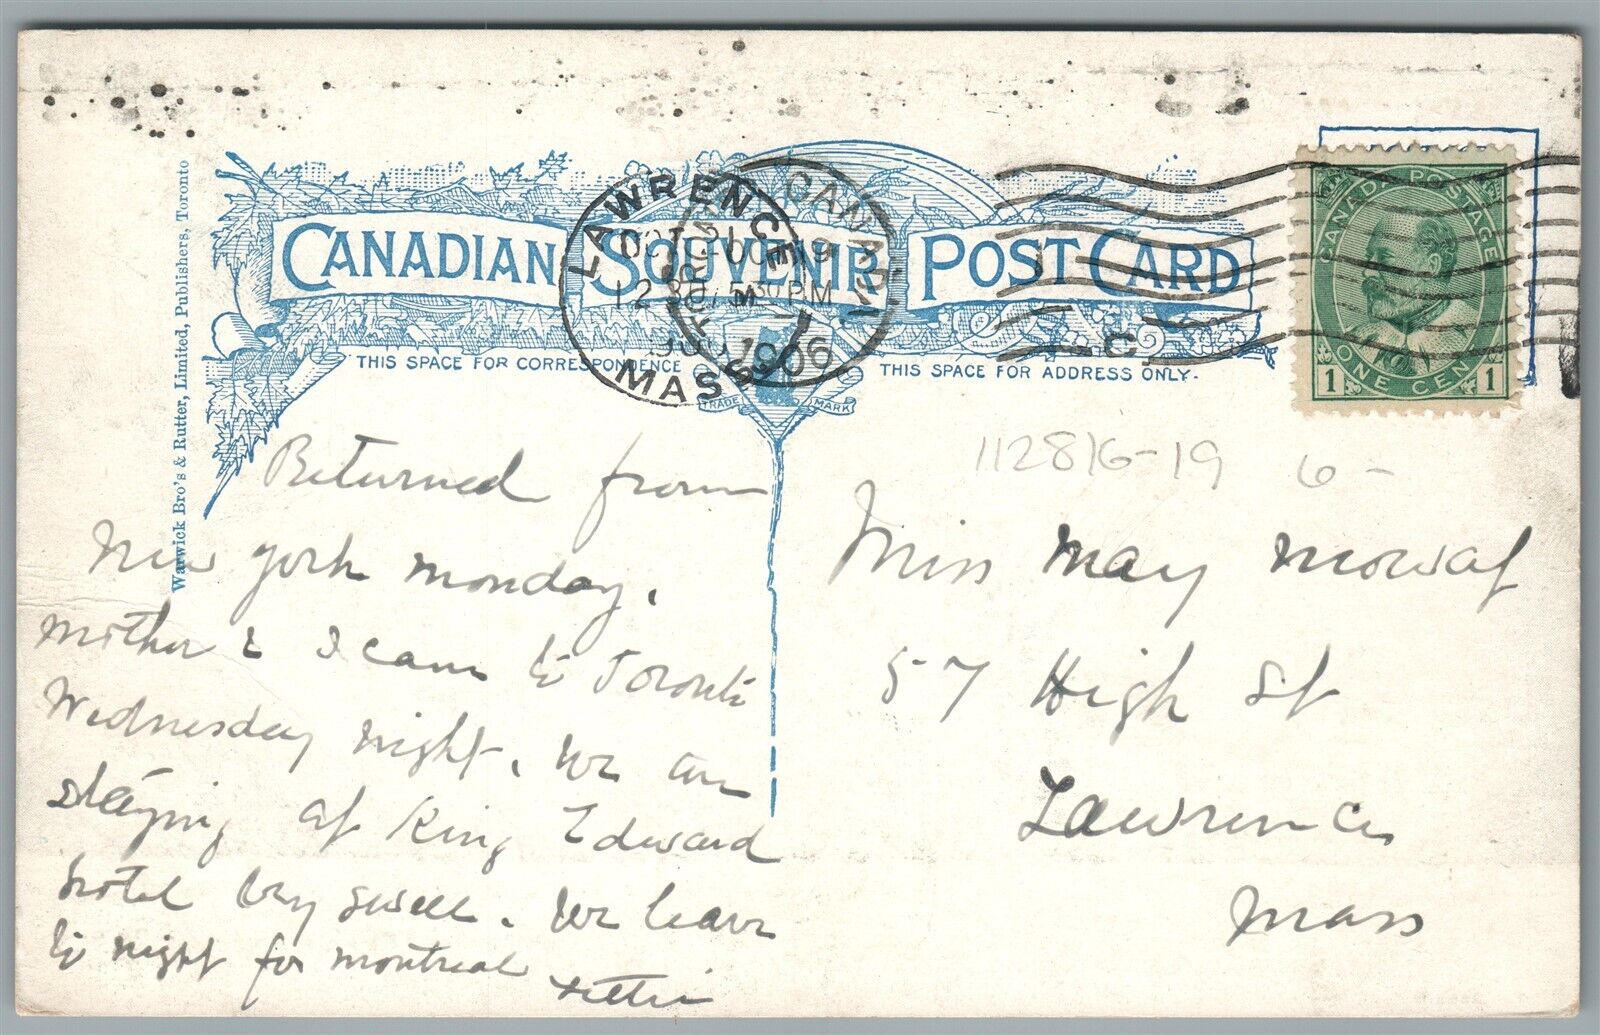 CANADIAN SOUVENIR POST CARD
THIS SPACE FOR CORRESPONDENCE
THIS SPACE FOR ADDRESS ONLY.
TRADE MARK
Warwick Bro's & Rutter, Limited, Publishers, Toronto
LAWRENCE
MASS
OCT 21
12 30
CANADA
OC 19
5 30 PM
1906
C
CANADA POSTAGE
1 ONE CENT 1
112816-19 6-
Returned from
New York Monday.
Mother & I came to Toronto
Wednesday night. We are
staying at King Edward
Hotel very swell. We leave
to night for Montreal
Miss May Mowat
57 High St
Lawrence
Mass